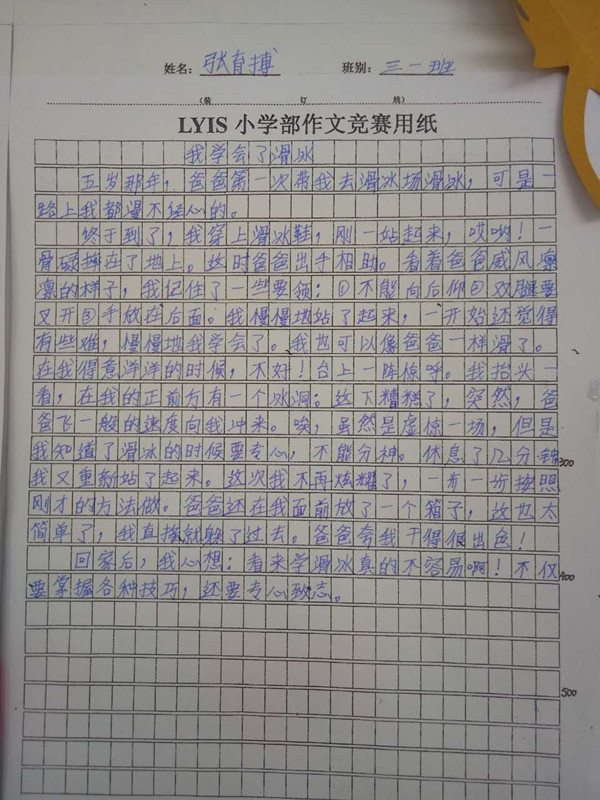 姓名：张育搏 班别：三一班
（装 订 线）
LYIS 小学部作文竞赛用纸
我学会了滑冰
五岁那年，爸爸第一次带我去滑冰场滑冰，可是一
路上我都漫不经心的。
终于到了，我穿上滑冰鞋，刚一站起来，哎哟！一
骨碌摔在了地上。这时爸爸出手相助。看着爸爸威风凛
凛的样子，我记住了一些要领：①不能向后仰②双腿要
叉开③手放在后面。我慢慢地站了起来，一开始还觉得
有些难，慢慢地我学会了。我也可以像爸爸一样滑了。
在我得意洋洋的时候，不好！台上一阵惊呼。我抬头一
看，在我的正前方有一个冰洞。这下糟糕了，突然，爸
爸飞一般的速度向我冲来。唉，虽然是虚惊一场，但是
我知道了滑冰的时候要专心，不能分神。休息了几分钟
300
我又重新站了起来。这次我不再炫耀了，一步一步按照
刚才的方法做。爸爸还在我面前放了一个箱子，这也太
简单了，我直接就躲了过去。爸爸夸我干得很出色！
回家后，我心想：看来学滑冰真的不容易啊！不仅
400
要掌握各种技巧，还要专心致志。
500